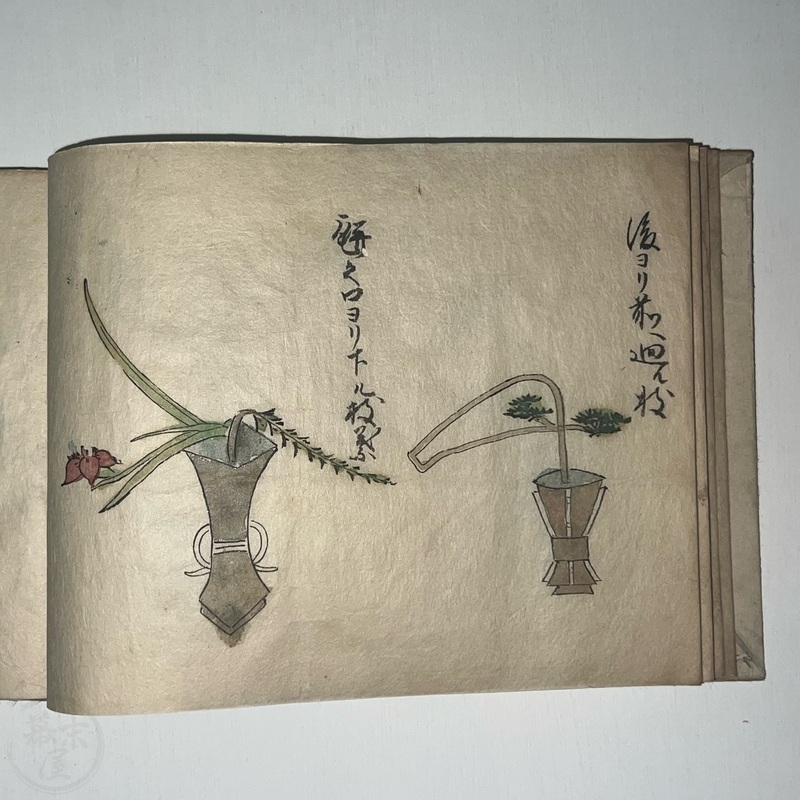 後ヨリ前ヘ廻ル枝
瓶之口ヨリ下ル枝葉